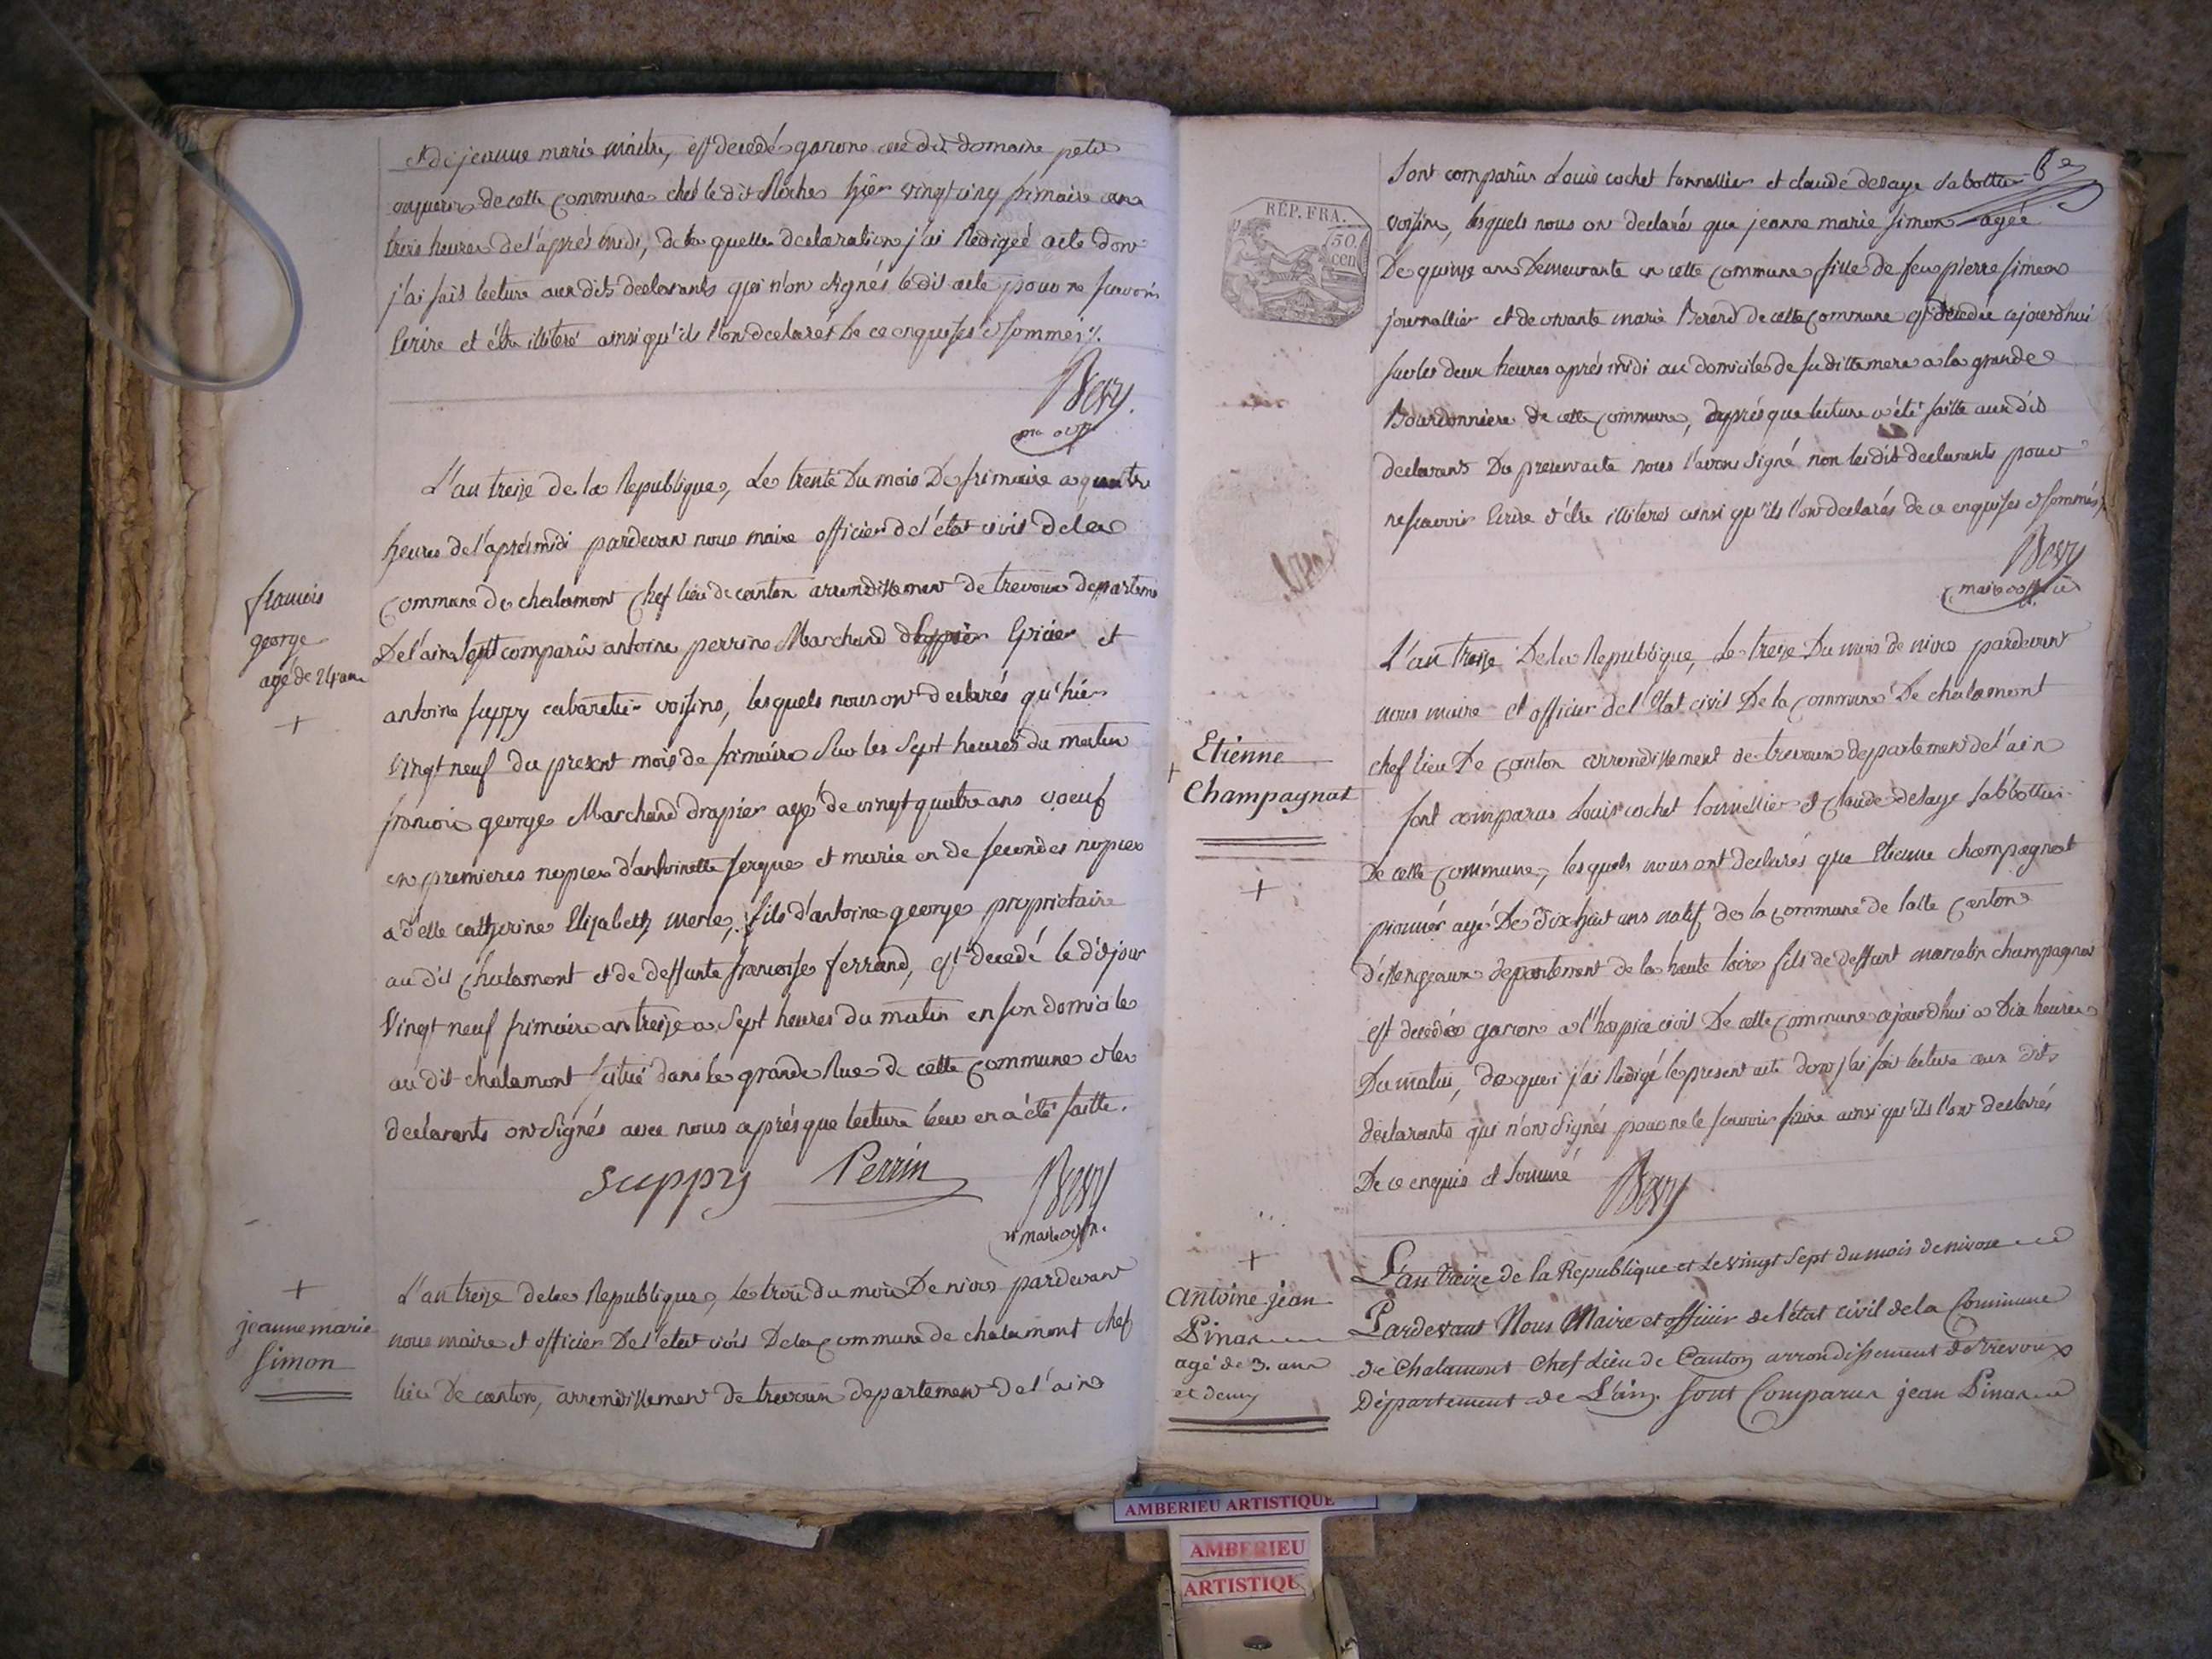 et de jeanne marie maitre, est decedé garcone au dit domaine petit
de cette commune chez le dit Roche hier vingt cinq frimaire a
trois heures de l'aprés midi, de la quelle declaration j'ai Redigeé acte dont
j'ai fais lecture aux dits declarants qui n'on signés le dit acte pour ne scavoir
Ecrire et étre illiteré ainsi qu'ils l'on declarés de ce enquises et sommés
L'an treize de la Republique, Le trente Du mois De frimaire a quatre
heures de l'aprés midi pardevant nous maire officier de l'état civil de la
francois
george
agé de 24 ans
+
Commune de chalamont Chef lieu de canton arrondissement de trevoux departemt
De l'ain Sont comparûs antoine perrin Marchand Epicier et
antoine suppy cabaretier voisins, lesquels nous ont declarés qu'hier
vingt neuf du present mois de frimaire Sur les Sept heures du matin
francois george Marchand drapier agé de vingt quatre ans voeuf
en premieres nopces d'antoinette ferque et marie en de secondes nopces
a d'elle catherine Elizabeth merle, fils d'antoine george proprietaire
au dit Chalamont et de deffunte francoise ferrand, est decedé le dit jour
Vingt neuf frimaire an treize a Sept heures du matin en son domicile
au dit chalamont situé dans la grande Rue de cette commune et les
declarants on signés avec nous aprés que lecture leur en a été faitte.
suppy Perrin
+
jeanne marie
simon
L'an treize de la Republique, le trois du mois De nivos pardevant
nous maire et officier De l'etat civil De la commune de chalamont chef
lieu De canton, arrondissement de trevoux departement de l'ain
62
RÉP. FRA.
50.
cen
Sont comparûs Louis cochet tonnellier et claude desaye sabottier
voisins, lesquels nous on declarés que jeanne marie simon agée
De quinze ans Demeurante en cette commune fille de feu pierre simon
journallier et de vivante marie Berard de cette commune est decedée cejourdhui
sur les deux heures aprés midi au domicile de sa ditte mere a la grande
Bourdonniere de cette commune, aprés que lecture a été faitte aux dis
declarants Du present acte nous l'avons signé non les dits declarants pour
ne scavoir Ecrire et étre illiteres ainsi qu'ils l'on declarés de ce enquises et sommés
Etienne
Champagnat
+
L'an treize De la Republique, Le treize Du mois de nivos pardevant
nous maire et officier de l'Etat civil De la commune De chalamont
chef lieu De canton arrondissement de trevoux departement de l'ain
sont comparus Louis cochet tonnellier et Claude desaye sabbottier
De cette commune, lesquels nous ont declarés que Etienne champagnat
agé De Dix huit ans natif de la commune de canton
d'issengeaux departement de la haute loire fils de deffunt marcelin champagnat
est decedée garcon a l'hospice civil De cette commune cejourdhui a Dix heures
Du matin, de quoi j'ai Redigé le present acte dont j'ai fait lecture aux dits
declarants qui n'on signés pour ne le scavoir faire ainsi qu'ils l'ont declarés
De ce enquis et sommé
+
antoine jean
Pinan
agé de 3. ans
et demy
L'an treize de la Republique et le vingt Sept du mois de nivose
Pardevant Nous Maire et officier de l'état civil de la Commune
de Chalamont Chef Lieu de Canton arrondissement de trevoux
Département de L'ain. sont Comparus jean Pinan
AMBERIEU ARTISTIQUE
AMBERIEU
ARTISTIQUE